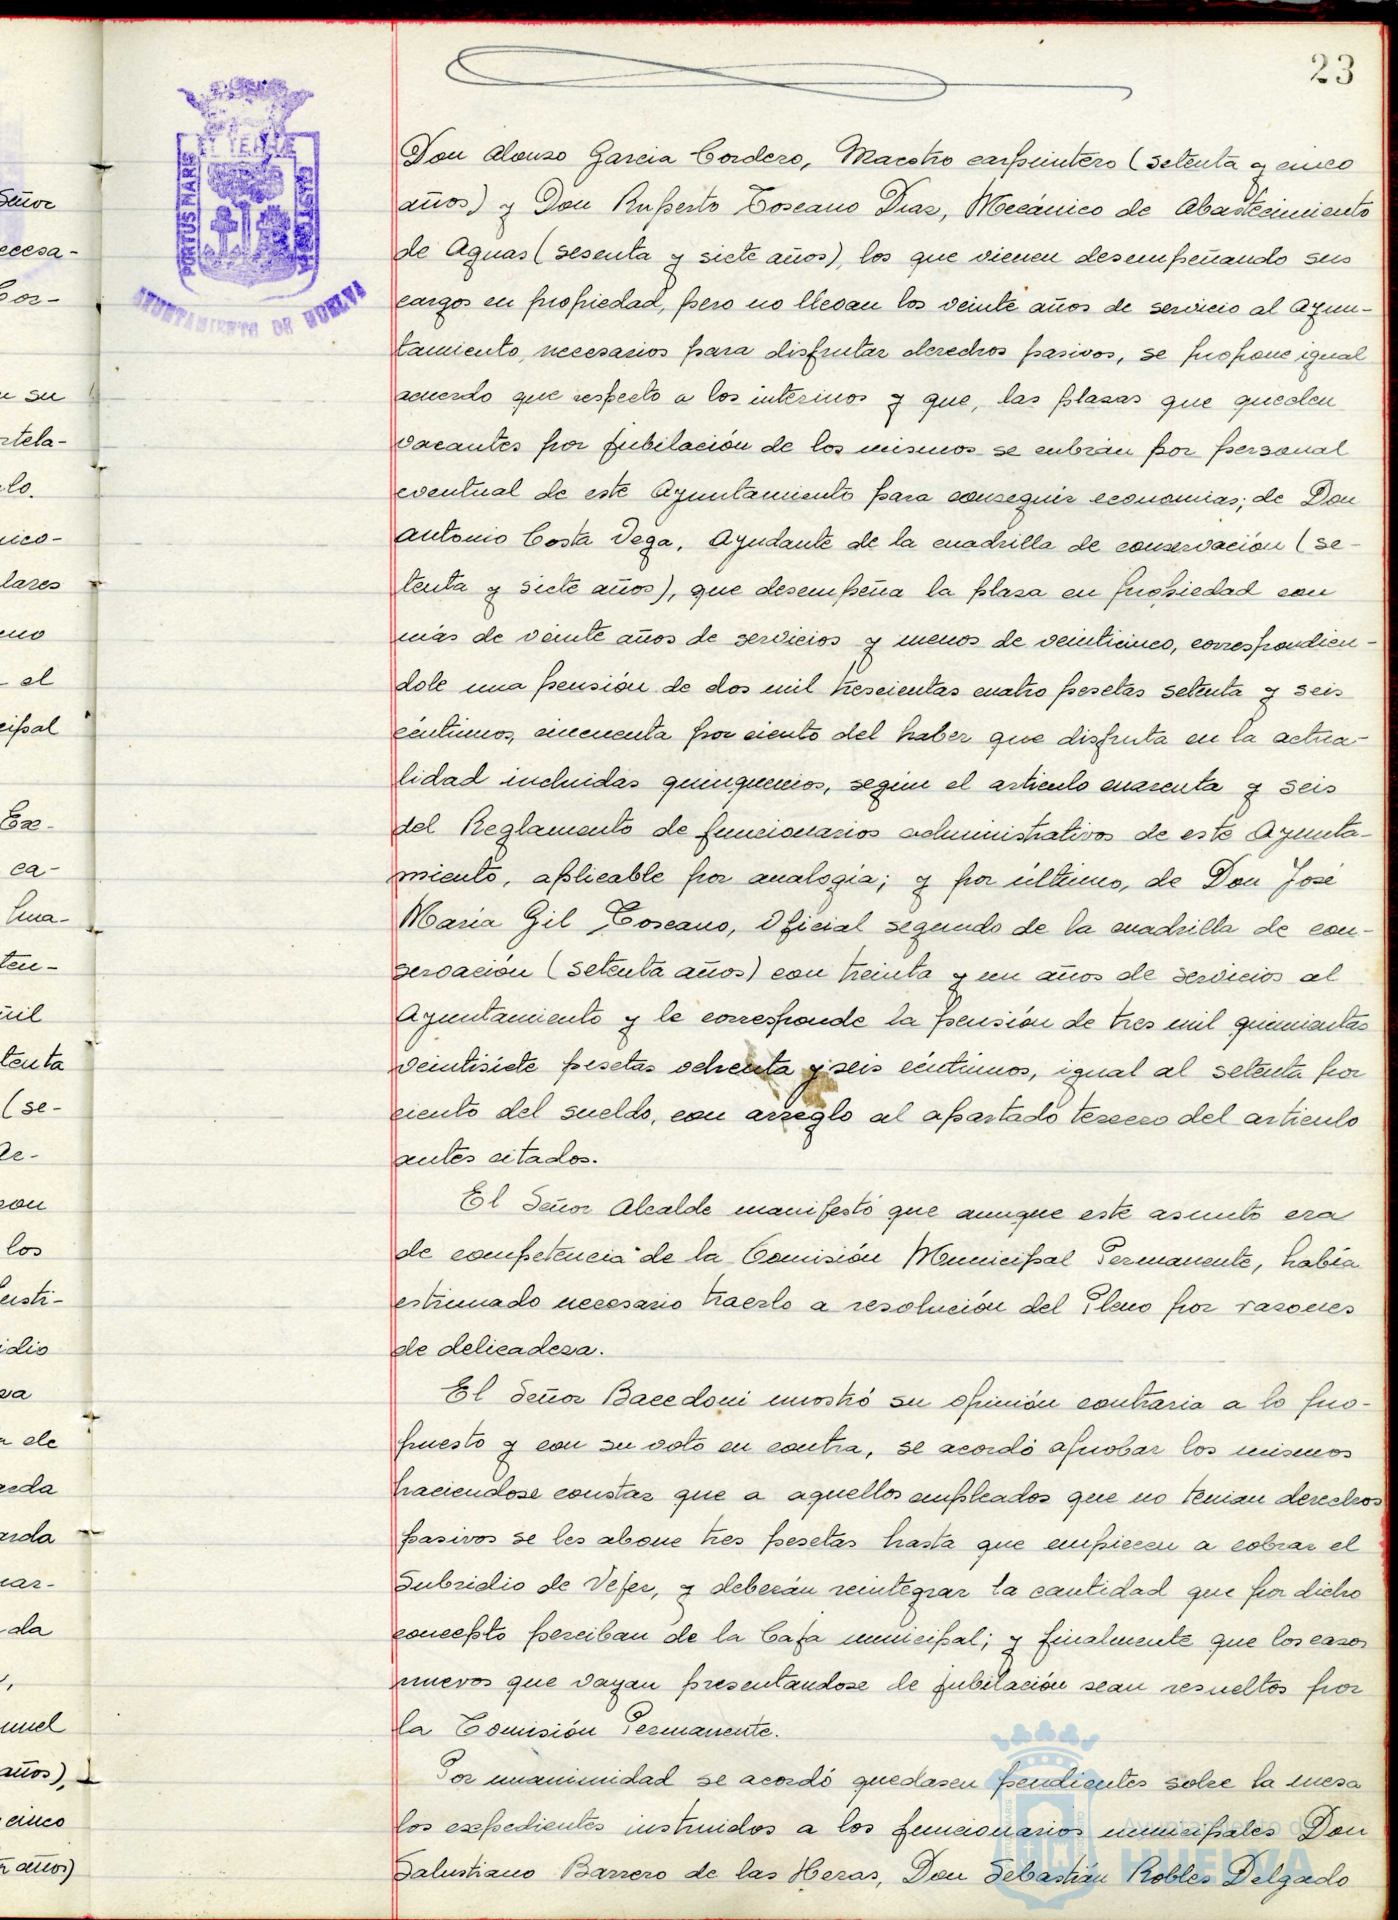 23
Don Alonso Garcia Cordero, Maestro carpintero (setenta y cinco
años) y Don Ruperto Toscano Diaz, Mecánico de Abastecimiento
de Aguas (sesenta y siete años), los que vienen desempeñando sus
cargos en propiedad, pero no llevan los veinte años de servicio al Ayun-
tamiento, necesarios para disfrutar derechos pasivos, se propone igual
acuerdo que respecto a los interinos y que, las plazas que queden
vacantes por jubilación de los mismos se cubran por personal
eventual de este Ayuntamiento para conseguir economias; de Don
Antonio Costa Vega, Ayudante de la cuadrilla de conservación (se-
tenta y siete años), que desempeña la plaza en propiedad con
más de veinte años de servicios y menos de veinticinco, correspondien-
dole una pensión de dos mil trescientas cuatro pesetas setenta y seis
céntimos, cincuenta por ciento del haber que disfruta en la actua-
lidad incluidas quinquenios, según el articulo cuarenta y seis
del Reglamento de funcionarios administrativos de este Ayunta-
miento, aplicable por analogía; y por último, de Don José
María Gil Toscano, Oficial segundo de la cuadrilla de con-
servación (setenta años) con treinta y un años de servicios al
Ayuntamiento y le corresponde la pensión de tres mil quinientas
veintisiete pesetas ochenta y seis céntimos, igual al setenta por
ciento del sueldo, con arreglo al apartado tercero del articulo
antes citados.
El Señor Alcalde manifestó que aunque este asunto era
de competencia de la Comisión Municipal Permanente, había
estimado necesario traerlo a resolución del Pleno por razones
de delicadeza.
El Señor Bacedoni mostró su opinión contraria a lo pro-
puesto y con su voto en contra, se acordó aprobar los mismos
haciendose constar que a aquellos empleados que no tenian derechos
pasivos se les abone tres pesetas hasta que empiecen a cobrar el
Subsidio de Vejez, y deberán reintegrar la cantidad que por dicho
concepto perciban de la Caja municipal; y finalmente que los casos
nuevos que vayan presentandose de jubilación sean resueltos por
la Comisión Permanente.
Por unanimidad se acordó quedasen pendientes sobre la mesa
los expedientes instruidos a los funcionarios municipales Don
Salustiano Barrero de las Heras, Don Sebastián Robles Delgado
PORTUS MARIS
ET TERRAE
CUSTODIA
AYUNTAMIENTO DE HUELVA
Señor
ecesa-
Cor-
su
rtela-
lo.
nico-
lares
el
cipal
Ex-
ca-
ten-
mil
tenta
(se-
con
los
idio
de
da
años),
cinco
años)
Ayuntamiento de
HUELVA